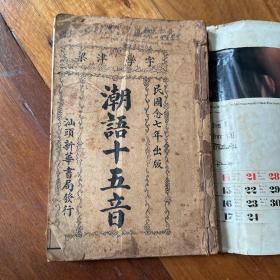 字學津梁
民國念七年出版
潮語十五音
汕頭新華書局發行
14 21 28
15 22 29
16 23 30
17 24